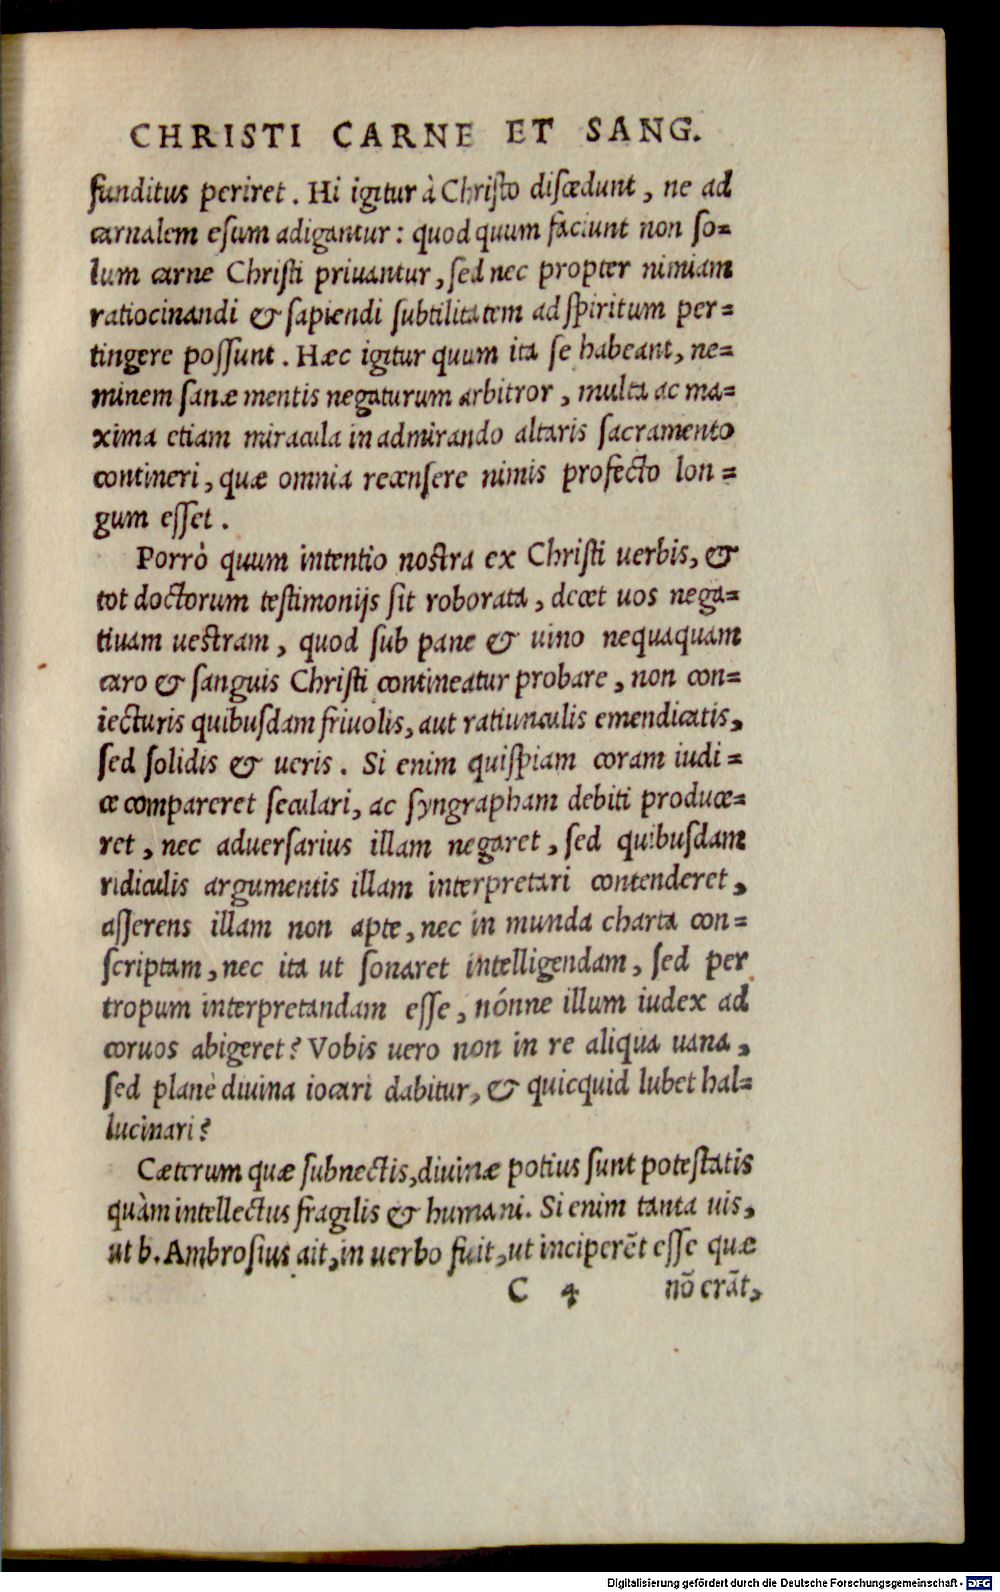 CHRISTI CARNE ET SANG.
funditus periret. Hi igitur à Christo discedunt, ne ad
carnalem esum adigantur: quod quum faciunt non so=
lum carne Christi priuantur, sed nec propter nimiam
ratiocinandi & sapiendi subtilitatem ad spiritum per=
tingere possunt. Hæc igitur quum ita se habeant, ne=
minem sanæ mentis negaturum arbitror, multa ac ma=
xima etiam miracula in admirando altaris sacramento
contineri, quæ omnia recensere nimis profecto lon=
gum esset.
Porrò quum intentio nostra ex Christi uerbis, &
tot doctorum testimonijs sit roborata, decet uos nega=
tiuam uestram, quod sub pane & uino nequaquam
caro & sanguis Christi contineatur probare, non con=
iecturis quibusdam friuolis, aut ratiunculis emendicatis,
sed solidis & ueris. Si enim quispiam coram iudi=
ce compareret seculari, ac syngrapham debiti produce=
ret, nec aduersarius illam negaret, sed quibusdam
ridiculis argumentis illam interpretari contenderet,
asserens illam non apte, nec in munda charta con=
scriptam, nec ita ut sonaret intelligendam, sed per
tropum interpretandam esse, nónne illum iudex ad
coruos abigeret? Vobis uero non in re aliqua uana,
sed planè diuina iocari dabitur, & quicquid lubet hal=
lucinari?
Cæterum quæ subnectis, diuinæ potius sunt potestatis
quàm intellectus fragilis & humani. Si enim tanta uis,
ut b. Ambrosius ait, in uerbo fuit, ut inciperēt esse quæ
C 4 nō erāt,
Digitalisierung gefördert durch die Deutsche Forschungsgemeinschaft - DFG